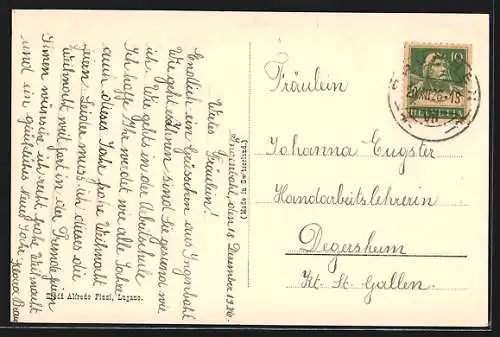 Ingenbohl, den 18 Dezember 1926.
Werte Fräulein!
Endlich ein Grüsschen aus Ingenbohl
Wie geht es Ihnen sind Sie gesund wie
ich. Wie gehts in der Arbeitschule
Ich hoffe Ihr werdet wie alle Jahre
auch dieses Jahr frohe Weihnacht
feiern Leider muss ich dieses die
Weihnacht weit fort in der Fremde feiern
Ihnen wünsche ich recht frohe Weihnacht
und ein glückliches Neues Jahr
(Made in Switzerland)
Alfredo Finzi, Lugano.
10
HELVETIA
Fräulein
Johanna Eugster
Handarbeitslehrerin
Degersheim
Kt. St. Gallen.